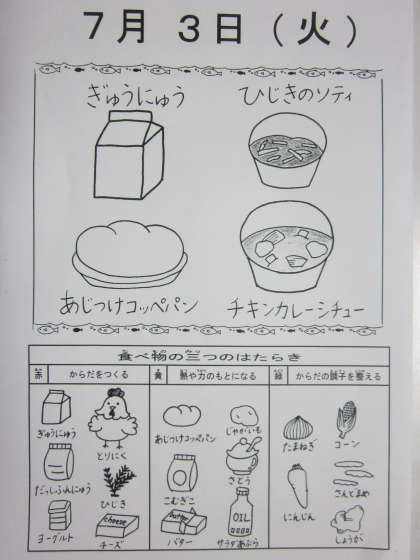 7月 3日(火)
ぎゅうにゅう
ひじきのソティ
あじつけコッペパン
チキンカレーシチュー
食べ物の三つのはたらき
赤 からだをつくる
黄 熱や力のもとになる
緑 からだの調子を整える
ぎゅうにゅう
とりにく
だっしふんにゅう
ひじき
ヨーグルト
cheese
チーズ
あじつけコッペパン
じゃがいも
こむぎこ
さとう
butter
バター
OIL
サラダあぶら
たまねぎ
コーン
にんじん
さんどまめ
しょうが